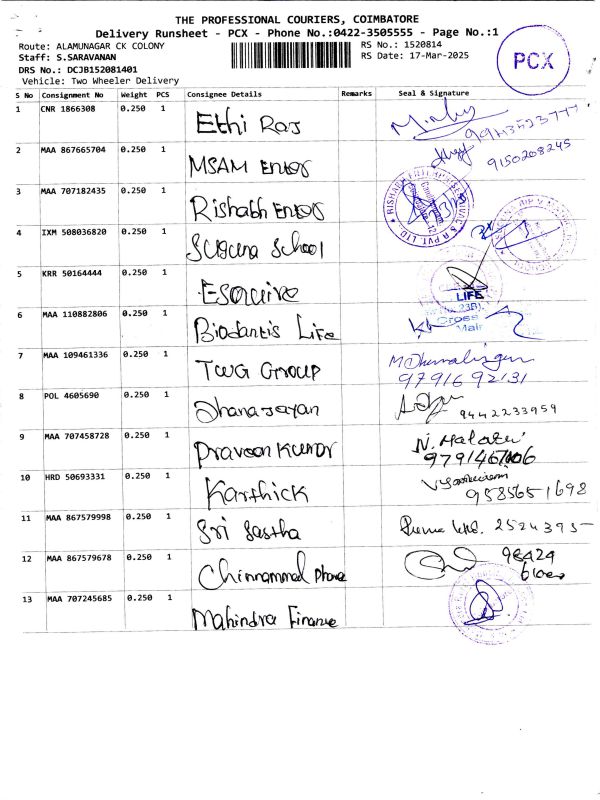 THE PROFESSIONAL COURIERS, COIMBATORE
Delivery Runsheet - PCX - Phone No.:0422-3505555 - Page No.:1
Route: ALAMUNAGAR CK COLONY
RS No.: 1520814
Staff: S.SARAVANAN
RS Date: 17-Mar-2025
DRS No.: DCJB152081401
Vehicle: Two Wheeler Delivery
PCX
S No Consignment No Weight PCS Consignee Details Remarks Seal & Signature
1 CNR 1866308 0.250 1 Ethi Raj
2 MAA 867665704 0.250 1 MSAM Enter 9150208245
3 MAA 707182435 0.250 1 Rishabh Enter
4 IXM 508036820 0.250 1 Suguna School
5 KRR 50164444 0.250 1 Esquire
LIFE
Cross
Main
6 MAA 110882806 0.250 1 Biodantis Life
7 MAA 109461336 0.250 1 TWG Group
9791692131
8 POL 4605690 0.250 1 Dhanajayan 9442233959
9 MAA 707458728 0.250 1 Praveen Kumar
10 HRD 50693331 0.250 1 Karthick 9585651698
11 MAA 867579998 0.250 1 Sri Sastha 2524395
12 MAA 867579678 0.250 1 Chinnammal Phone 98424
13 MAA 707245685 0.250 1 Mahindra Finance